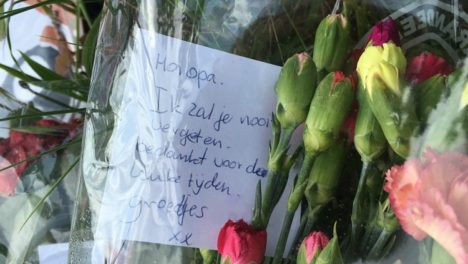 Hoi opa.
Ik zal je nooi
vergeten.
bedankt voor de
leuke tijden..
groetjes
xx